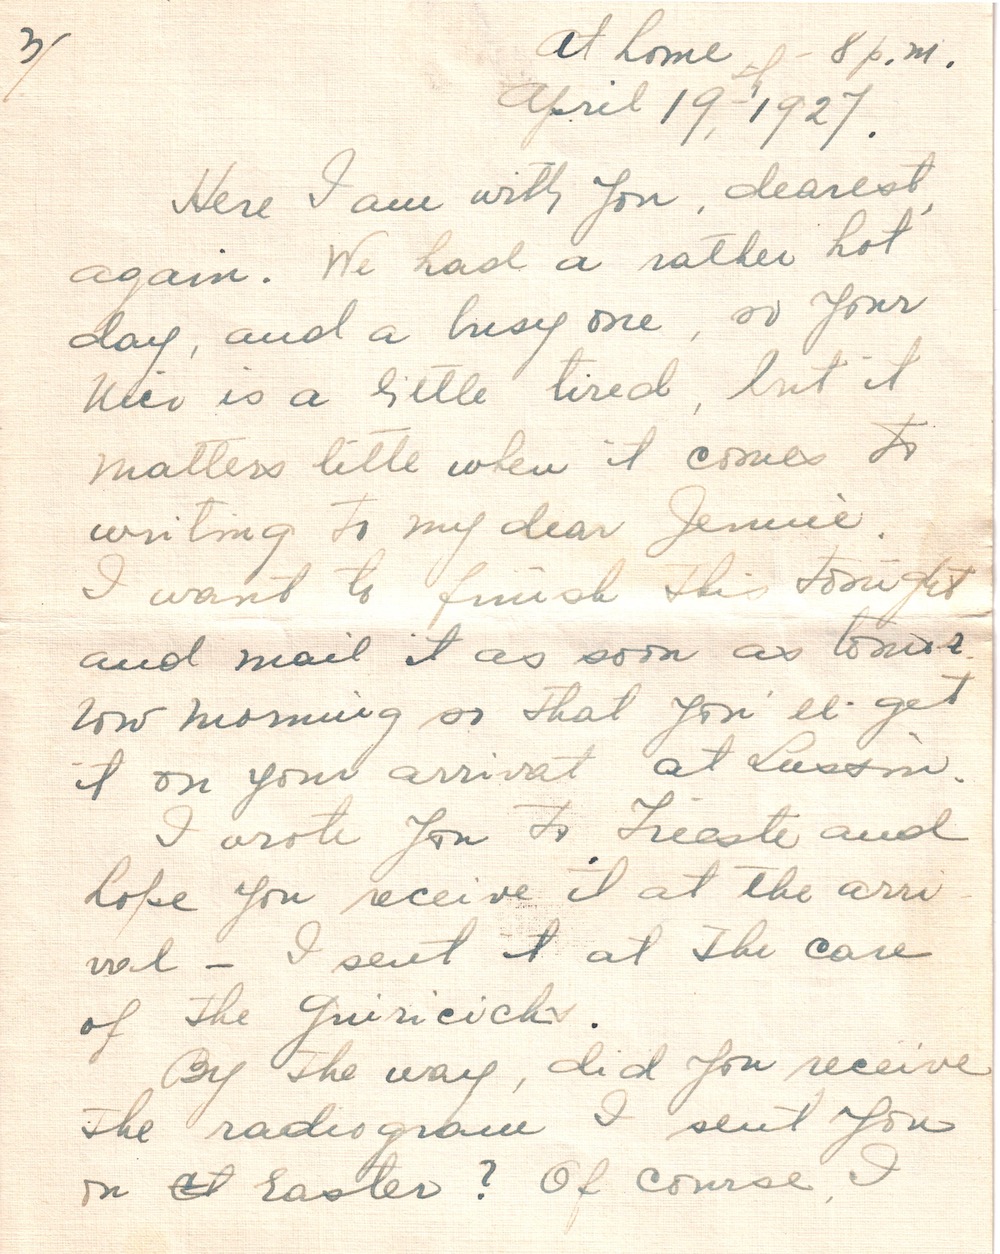 3/
At home - 8 p.m.
April 19, 1927.
Here I am with you, dearest,
again. We had a rather hot
day, and a busy one, so your
Nico is a little tired, but it
matters little when it comes to
writing to my dear Jennie.
I want to finish this tonight
and mail it as soon as tomor-
row morning so that you'll get
it on your arrival at Lussin.
I wrote you to Trieste and
hope you receive it at the arri
val - I sent it at the care
of the
By the way, did you receive
the radiogram I sent you
on Easter? Of course, I